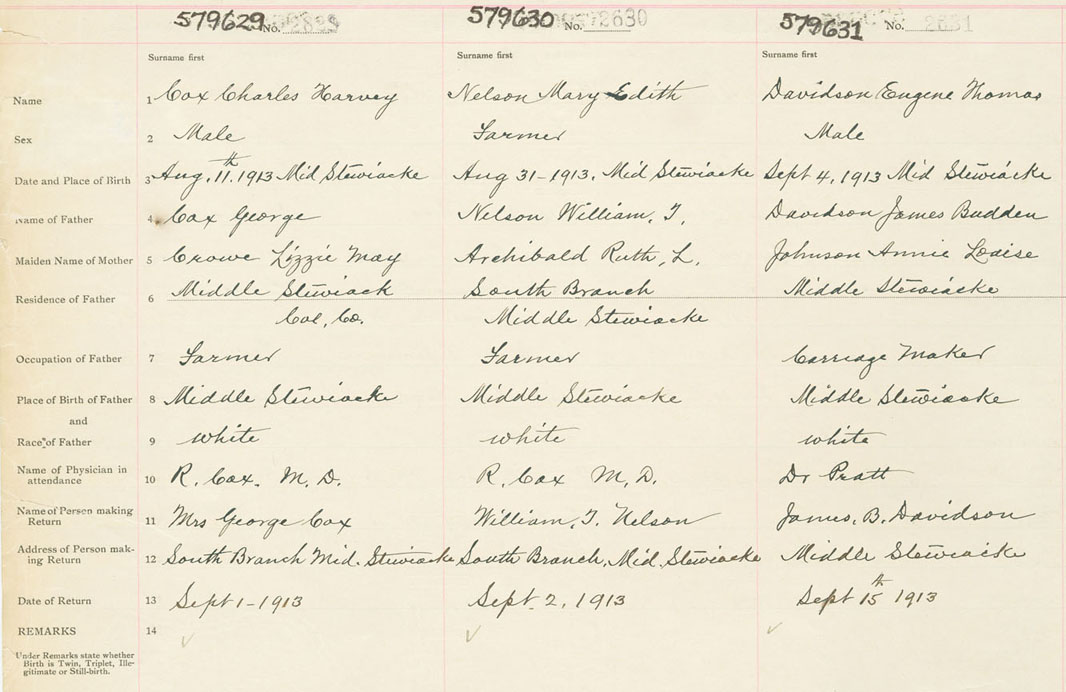 579629 No. 2829 579630 No. 2630 579631 No. 2631
Surname first Surname first Surname first
Name 1 Cox Charles Harvey Nelson Mary Edith Davidson Eugene Thomas
Sex 2 Male Farmer Male
Date and Place of Birth 3 Aug. 11th. 1913 Mid Stewiacke Aug 31-1913. Mid Stewiacke Sept 4, 1913 Mid Stewiacke
Name of Father 4 Cox George Nelson William. T. Davidson James Budden
Maiden Name of Mother 5 Crowe Lizzie May Archibald Ruth, L. Johnson Annie Louise
Residence of Father 6 Middle Stewiack South Branch Middle Stewiacke
Col. Co. Middle Stewiacke
Occupation of Father 7 Farmer Farmer Carriage Maker
Place of Birth of Father 8 Middle Stewiacke Middle Stewiacke Middle Stewiacke
and
Race of Father 9 white white white
Name of Physician in attendance 10 R. Cox. M. D. R. Cox M. D. Dr Pratt
Name of Person making Return 11 Mrs George Cox William. T. Nelson James. B. Davidson
Address of Person making Return 12 South Branch Mid. Stewiacke South Branch, Mid. Stewiacke Middle Stewiacke
Date of Return 13 Sept 1-1913 Sept. 2, 1913 Sept 15th 1913
REMARKS 14
Under Remarks state whether
Birth is Twin, Triplet, Ille-
gitimate or Still-birth.